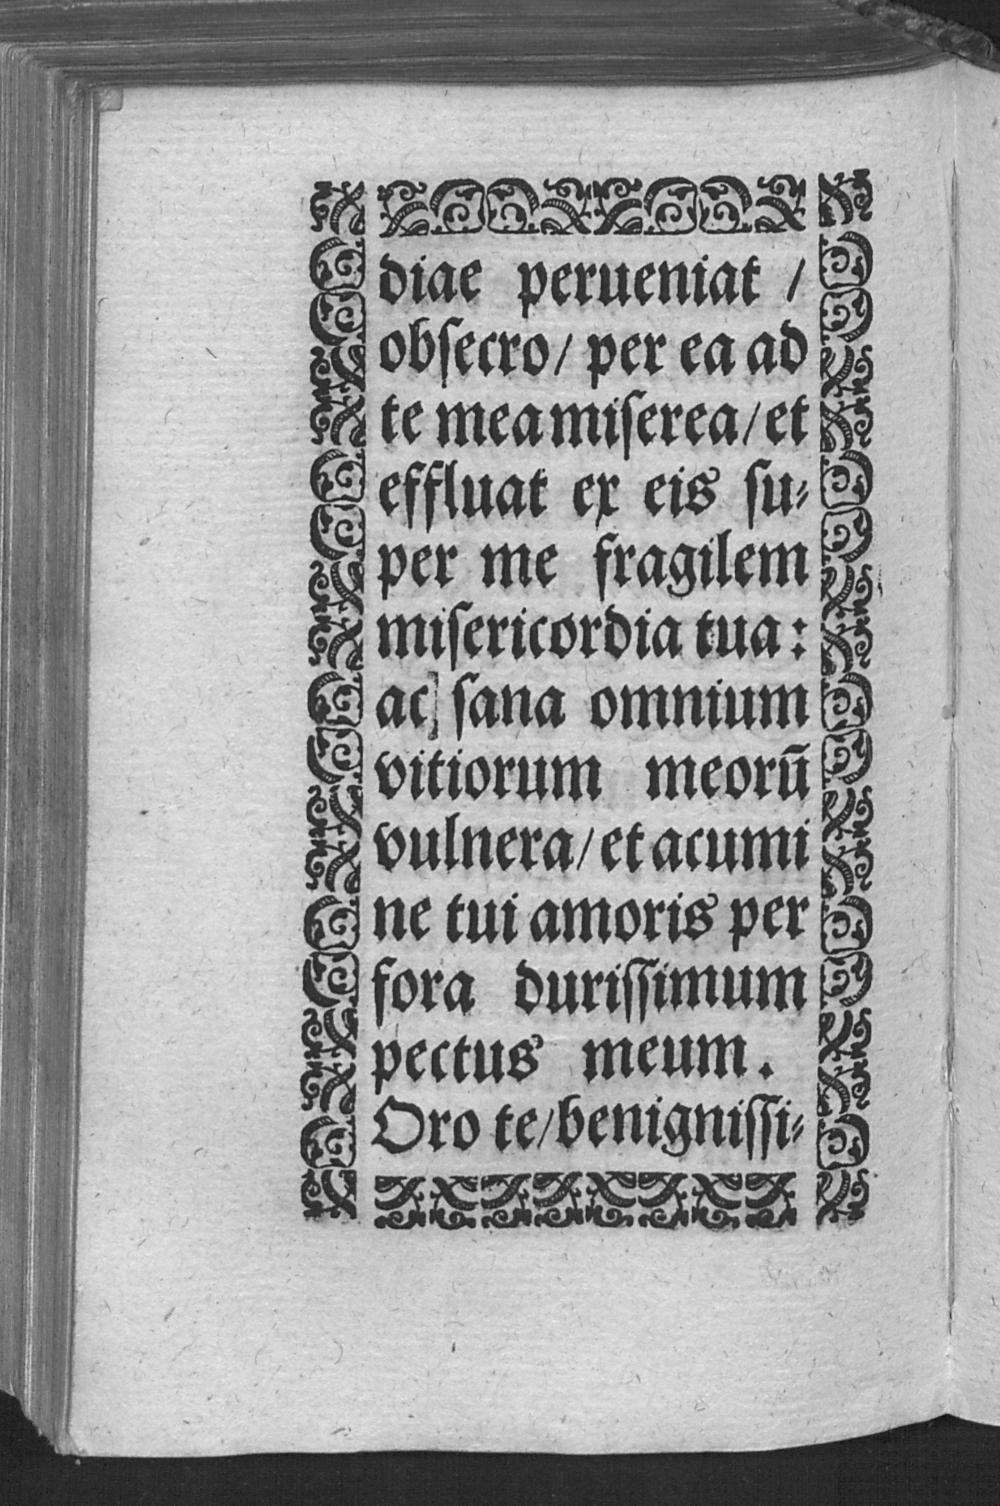 diae perueniat /
obſecro/ per ea ad
te mea miſerea/ et
effluat ex eis ſu⸗
per me fragilem
miſericordia tua:
ac ſana omnium
vitiorum meorū
vulnera/ et acumi
ne tui amoris per
fora duriſſimum
pectus meum.
Oro te/ benigniſſi⸗